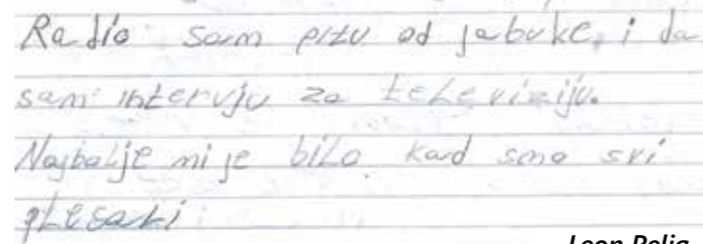 Radio sam pitu od jabuke, i da
sam intervju za televiziju.
Najbolje mi je bilo kad smo svi
plesali
Leon Pelig